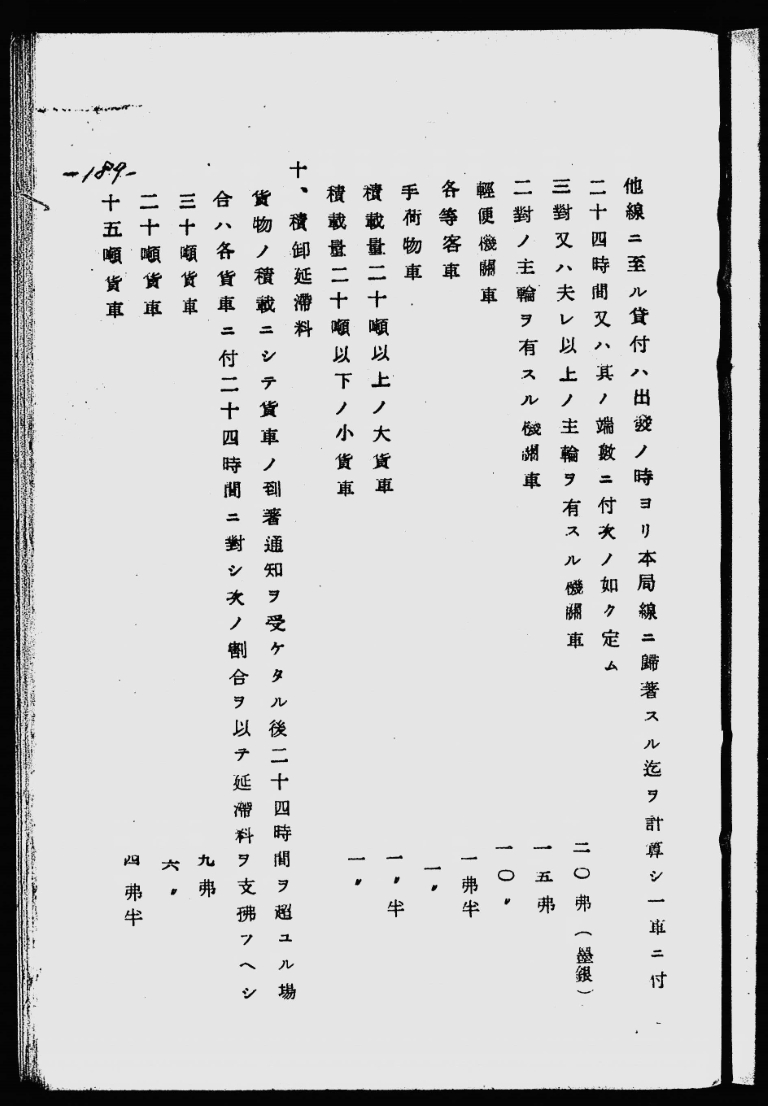 他線ニ至ル貸付ハ出發ノ時ヨリ本局線ニ歸著スル迄ヲ計算シ一車ニ付
二十四時間又ハ其ノ端數ニ付次ノ如ク定ム
三對又ハ夫レ以上ノ主輪ヲ有スル機關車 二〇弗(墨銀)
二對ノ主輪ヲ有スル機關車 一五弗
輕便機關車 一〇〃
各等客車 一弗半
手荷物車 一〃
積載量二十噸以上ノ大貨車 一〃半
積載量二十噸以下ノ小貨車 一〃
十、積卸延滯料
貨物ノ積載ニシテ貨車ノ到著通知ヲ受ケタル後二十四時間ヲ超ユル場
合ハ各貨車ニ付二十四時間ニ對シ次ノ割合ヲ以テ延滯料ヲ支拂フヘシ
三十噸貨車 九弗
二十噸貨車 六〃
十五噸貨車 四弗半
-189-